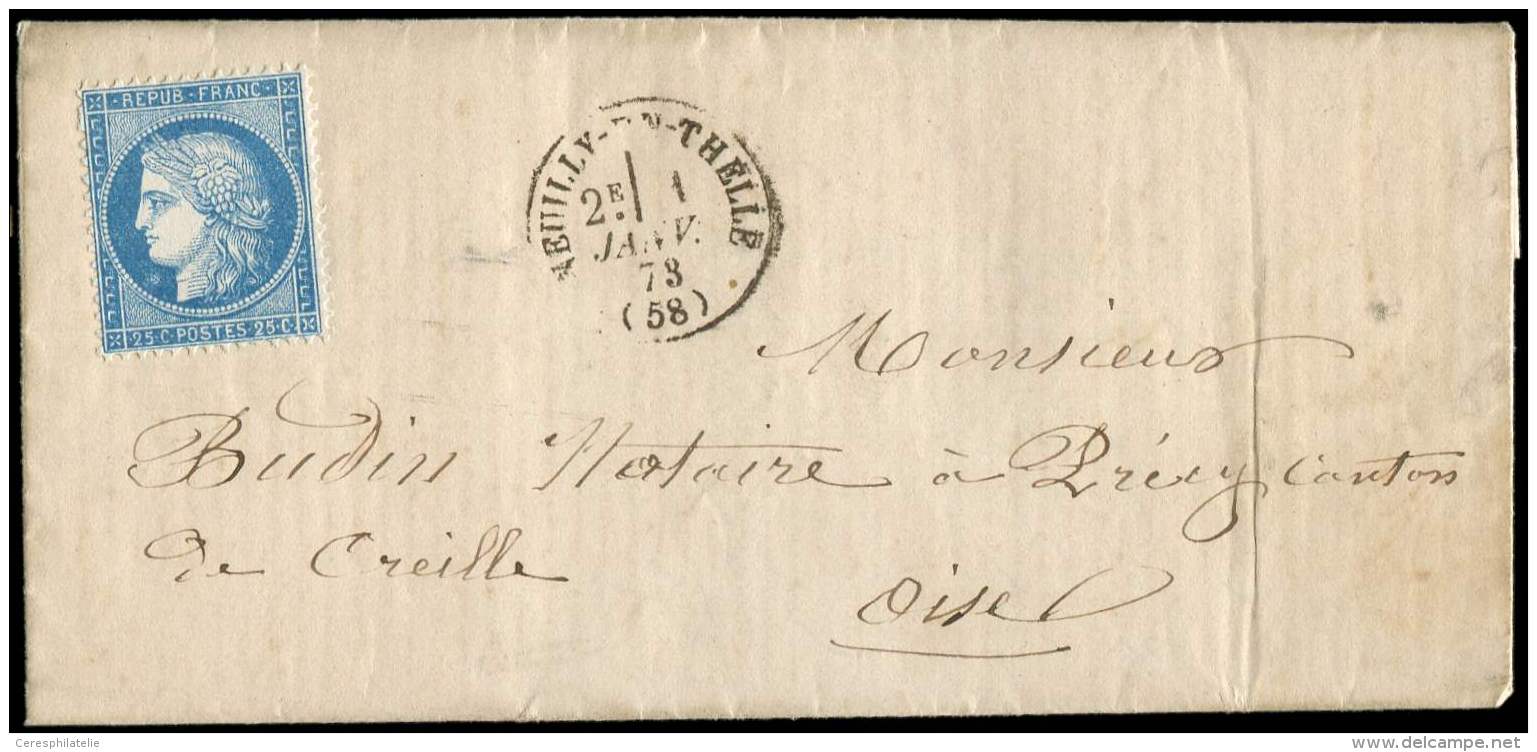 REPUB·FRANC·
25·C·POSTES·25·C·
NEUILLY-EN-THELLE
2E 1
JANV.
73
(58)
Monsieur
Budin Notaire à Précy Canton
de Creille
Oise
Ceresphilatelie